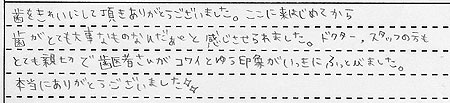 歯をきれいにして頂きありがとうございました。ここに来はじめてから
歯がとても大事なものなんだぁ〜と感じさせられました。ドクター、スタッフの方も
とても親切で歯医者さんがコワイとゆう印象がいっきにふっとびました。
本当にありがとうございました